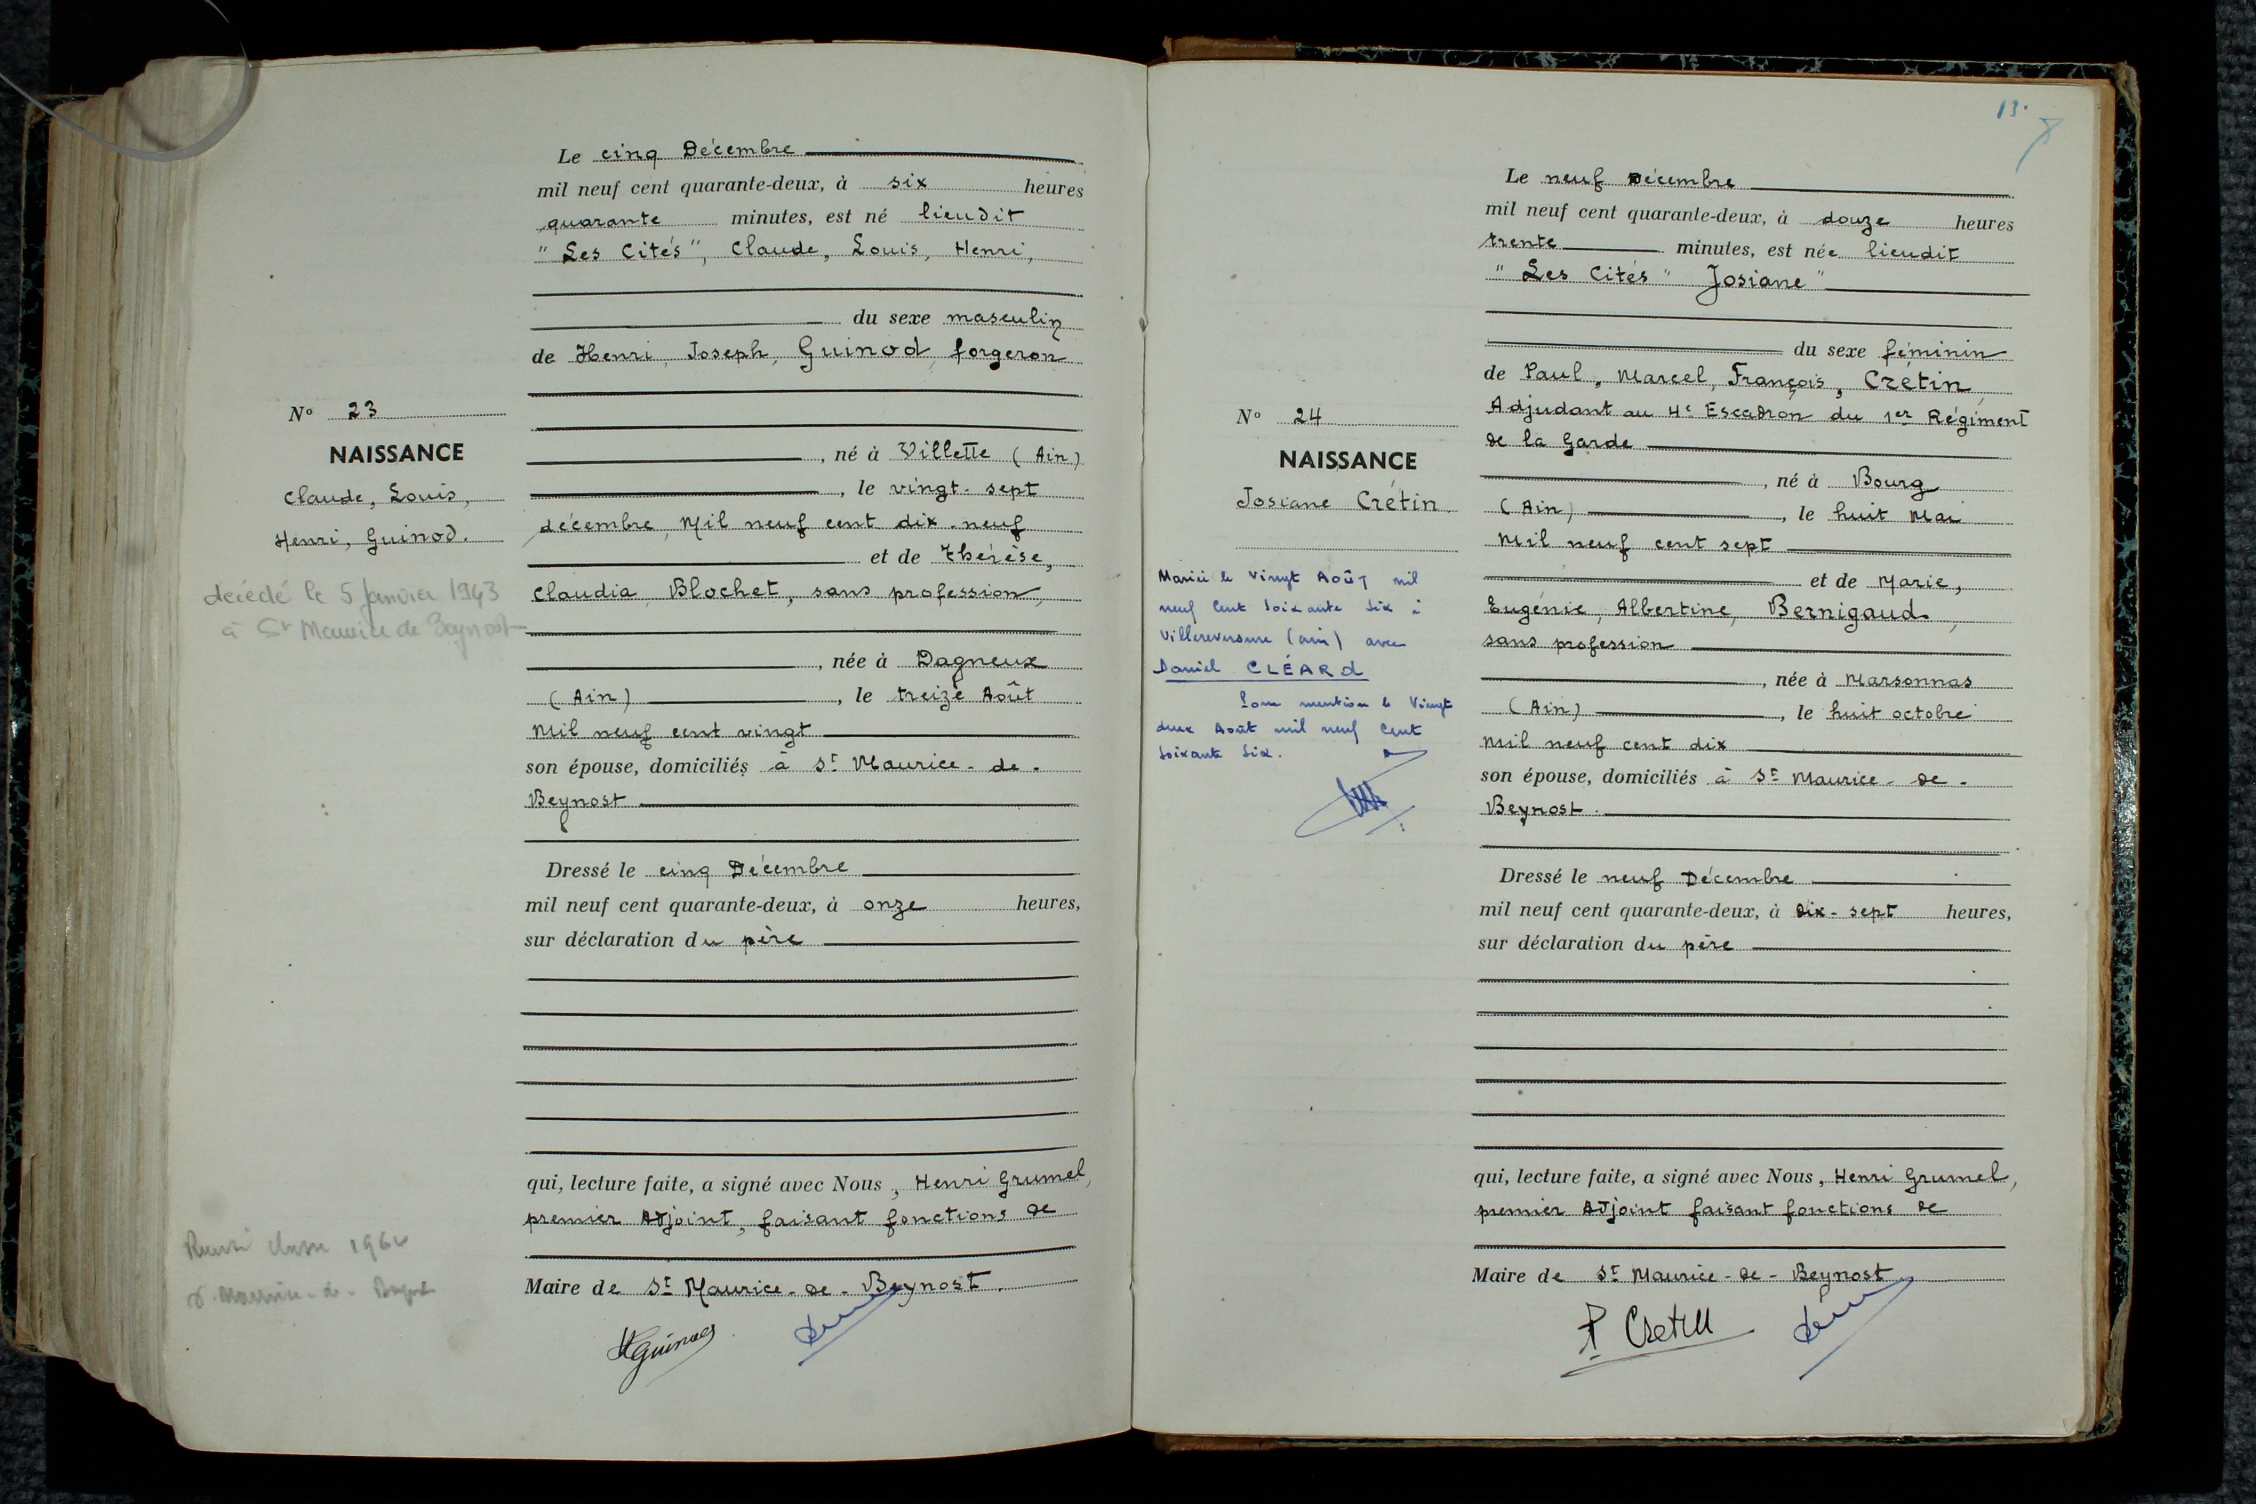 Le cinq Décembre
mil neuf cent quarante-deux, à six heures
quarante minutes, est né lieudit
" Les Cités ", Claude, Louis, Henri,
du sexe masculin
de Henri, Joseph, Guinod, forgeron
N° 23
NAISSANCE
Claude, Louis,
Henri, Guinod.
décédé le 5 Janvier 1943
à St Maurice de Beynost
, né à Villette (Ain)
, le vingt-sept
décembre, Mil neuf cent dix-neuf
et de Thérèse,
Claudia, Blochet, sans profession,
, née à Dagneux
(Ain), le treize Août
Mil neuf cent vingt
son épouse, domiciliés à St Maurice-de-
Beynost
Dressé le cinq Décembre
mil neuf cent quarante-deux, à onze heures,
sur déclaration du père
qui, lecture faite, a signé avec Nous, Henri Grumel,
premier Adjoint, faisant fonctions de
Maire de St Maurice-de-Beynost.
1964
HGuinod
13.
Le neuf Décembre
mil neuf cent quarante-deux, à douze heures
trente minutes, est née lieudit
" Les Cités " Josiane "
du sexe féminin
de Paul, Marcel, François, Crétin,
Adjudant au 4e Escadron du 1er Régiment
de la Garde
N° 24
NAISSANCE
Josiane Crétin.
Mariée le Vingt Août mil
neuf Cent Soixante Six à
Villereversure (ain) avec
Daniel CLÉARD
Pour mention le Vingt
deux Août mil neuf Cent
Soixante Six.
, né à Bourg
(Ain), le huit Mai
Mil neuf cent sept
et de Marie,
Eugénie, Albertine, Bernigaud,
sans profession
, née à Marsonnas
(Ain), le huit octobre
Mil neuf cent dix
son épouse, domiciliés à St Maurice-de-
Beynost.
Dressé le neuf Décembre
mil neuf cent quarante-deux, à dix-sept heures,
sur déclaration du père
qui, lecture faite, a signé avec Nous, Henri Grumel,
premier Adjoint faisant fonctions de
Maire de St Maurice-de-Beynost
P Cretin